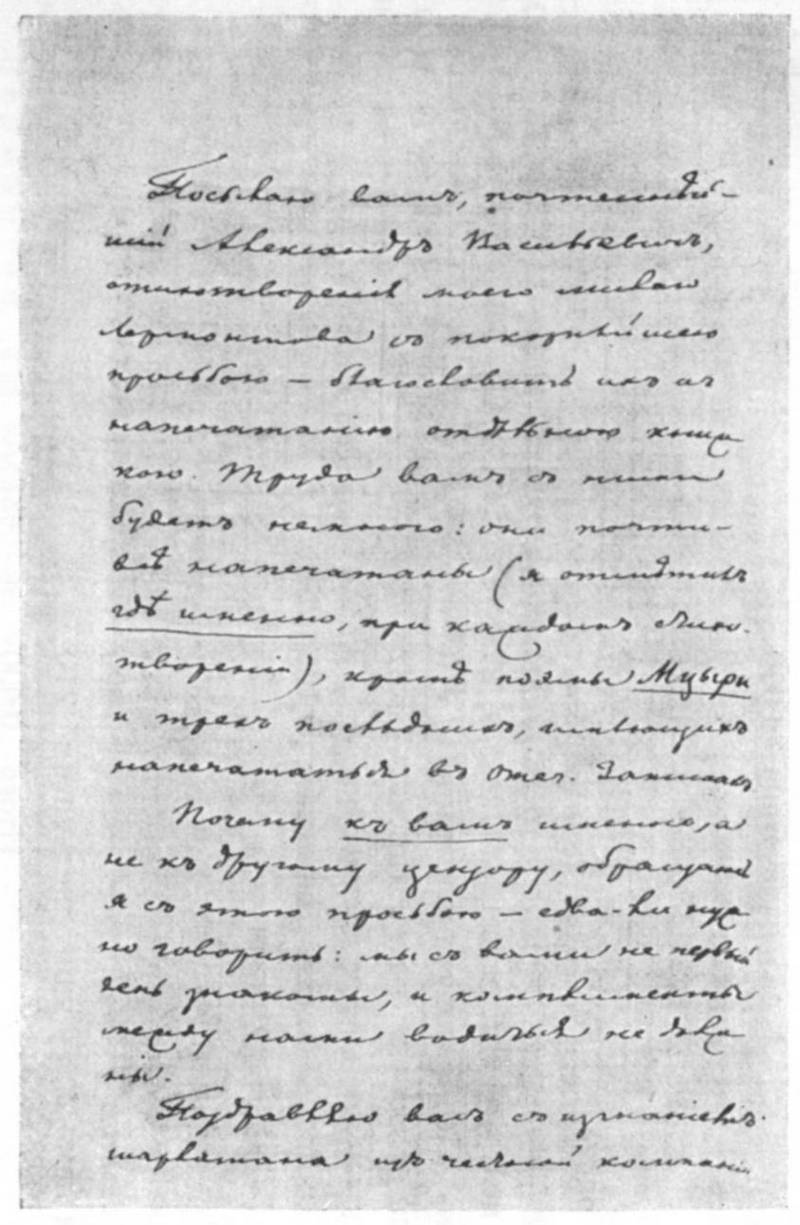 Посылаю вамъ, почтеннѣй-
шій Александръ Васильевичъ,
стихотворенія моего милаго
Лермонтова съ покорнѣйшею
просьбою — благословить ихъ къ
напечатанію отдѣльною книж
кою. Труда вамъ съ ними
будетъ немного: они почти-
всѣ напечатаны (я отмѣтилъ
гдѣ именно, при каждомъ стихо-
твореніи), кромѣ поэмы Мцыри
и трехъ послѣднихъ, имѣющихъ
напечататься въ Отеч. Запискахъ
Почему къ вамъ именно, а
не къ другому цензору, обращаюсь
я съ этою просьбою — едва-ли нуж
но говорить: мы съ вами не первый
день знакомы, и комплименты
между нами водиться не долж
ны.
Поздравляю васъ съ изгнаніемъ
шарлатана изъ честной компаніи